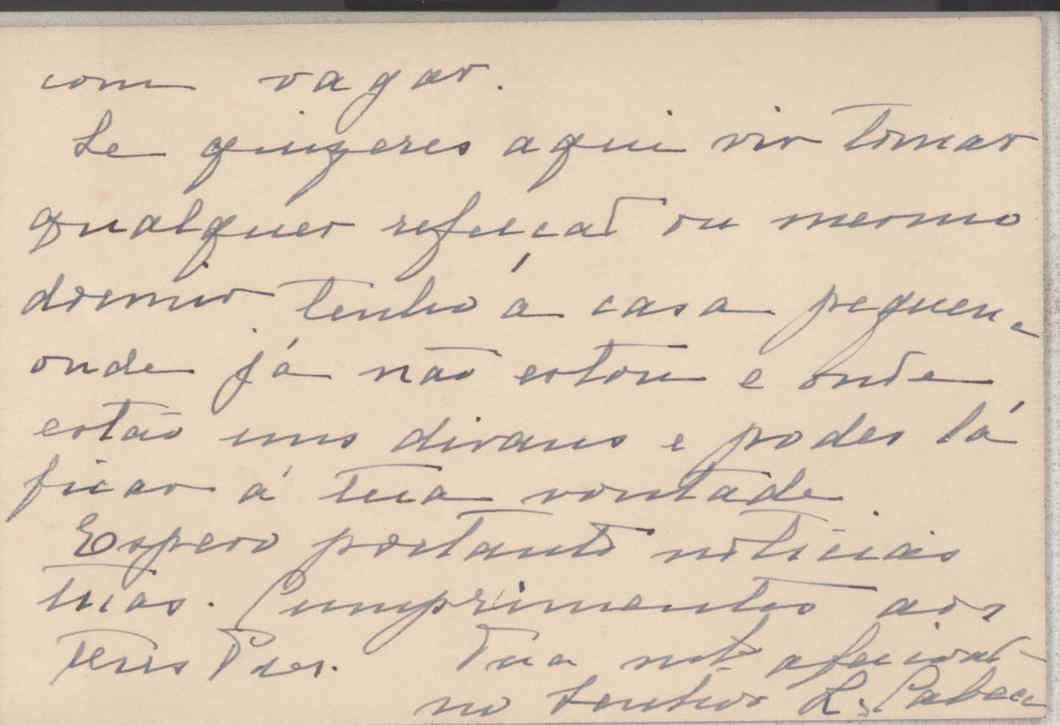 com vagar.
Se quizeres aqui vir tomar
qualquer refeição ou mesmo
dormir tenho á casa pequena
onde já não estou e onde
estão uns divans e podes lá
ficar á tua vontade
Espero portanto noticias
tuas. Cumprimentos aos
teus Pais. Tua mto afeiçoad
no Senhor L. Cabeç